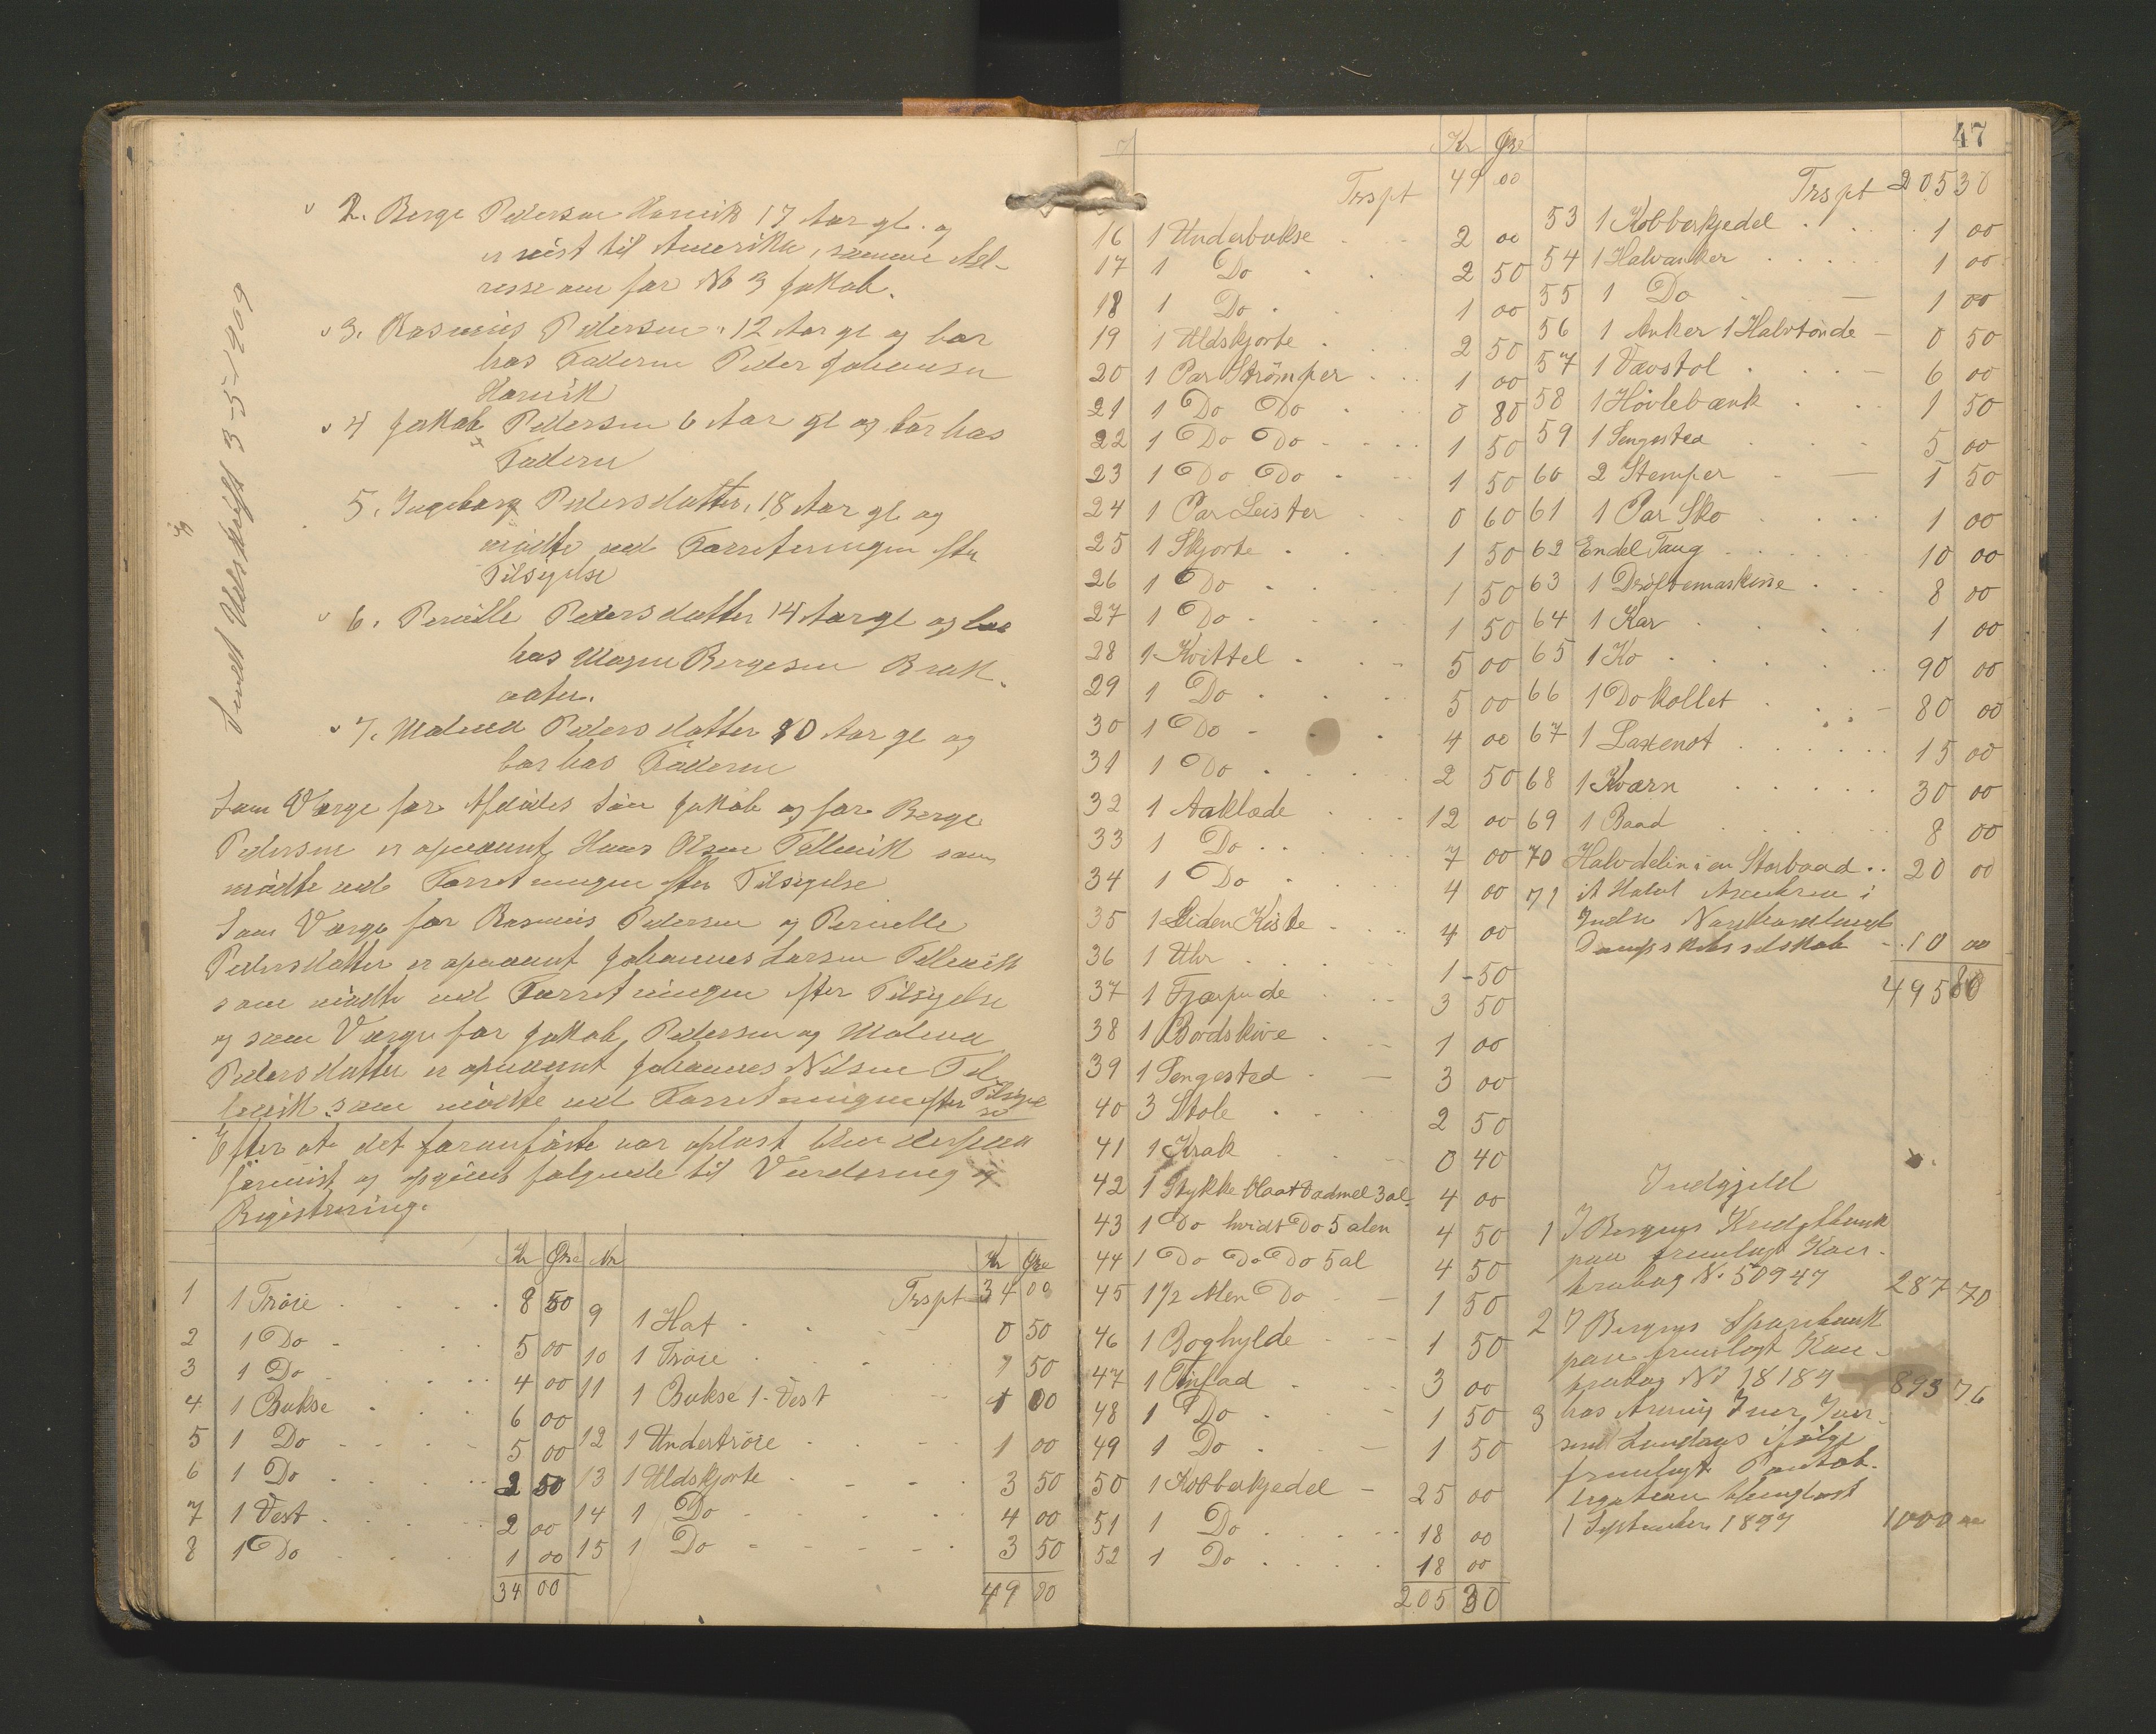 Sendt Udskrift 3-5-1909
2. Berge Pedersen Hamnik 17 Aar gl. og
er reist til Amerika, samme Ad-
resse som for No 3 Jakob.
3. Rasmus Pedersen. 12 Aar gl og bor
hos Faderen Peder Johansen
4 Jakob Pedersen 6 Aar gl og bor hos
Faderen
5. Ingeborg Pedersdatter. 18 Aar gl og
mödte ved Forretningen efter
Tilsigelse
6. Pernille Pedersdatter 14 Aar gl og bor
hos Mogns Bergesen Brak-
vatn.
7. Malena Pedersdatter 10 Aar gl og
bor hos Faderen
Som Værge for Afdödes Sön Jakob og for Berge
Pedersen er opnævnt Hans Olsen Tellevik som
mödte ved Forretningen efter Tilsigelse
Som Værge for Rasmus Pedersen og Pernille
Pedersdatter er opnævnt Johannes Larsen Tellevik
som mödte ved Forretningen efter Tilsigelse
og som Værge for Jakob Pedersen og Malena
Pedersdatter er opnævnt Johannes Nilsen Tel-
levik som mödte ved Forretningen efter Tilsigel
se
Efter at det foranförte var oplæst blev derpaa
fremvist og opgivet følgende til Vurdering og
Registrering.
Kr Øre Nr Kr Øre
1 1 Trøie 8 50
2 1 Do 5 00
3 1 Do 4 00
4 1 Bukse 6 00
5 1 Do 5 00
6 1 Do 2 50
7 1 Vest 2 00
8 1 Do 1 00
34 00
Trspt 34 00
9 1 Hat 0 50
10 1 Trøie 1 50
11 1 Bukse 1 Vest 1 00
12 1 Undertrøie 1 00
13 1 Uldskjorte 3 50
14 1 Do 4 00
15 1 Do 3 50
49 00
47
Kr Øre
Trspt 49 00
16 1 Underbukse 2 00
17 1 Do 2 50
18 1 Do 1 00
19 1 Uldskjorte 2 50
20 1 Par Strømper 1 00
21 1 Do Do 0 80
22 1 Do Do 1 50
23 1 Do Do 1 50
24 1 Par Leister 0 60
25 1 Skjorte 1 50
26 1 Do 1 50
27 1 Do 1 50
28 1 Kvittel 5 00
29 1 Do 5 00
30 1 Do 4 00
31 1 Do 2 50
32 1 Aaklæde 12 00
33 1 Do 7 00
34 1 Do 4 00
35 1 Liden Kiste 4 00
36 1 Uhr 1 50
37 1 Fjærpude 3 50
38 1 Bordskive 1 00
39 1 Sengested 3 00
40 3 Stole 2 50
41 1 Krak 0 40
42 1 Stykke blaat Vadmel 3 al. 4 00
43 1 Do hvidt Do 5 alen 4 50
44 1 Do Do Do 5 al 4 50
45 1 1/2 Alen Do 1 50
46 1 Boghylde 1 50
47 1 Tinfad 3 00
48 1 Do 1 50
49 1 Do 1 50
50 1 Kobberkjedel 25 00
51 1 Do 18 00
52 1 Do 18 00
205 30
Trspt 205 30
53 1 Kobberkjedel 1 00
54 1 Halvanker 1 00
55 1 Do 1 00
56 1 Anker 1 Halvtønde 0 50
57 1 Vævstol 6 00
58 1 Høvlebænk 1 50
59 1 Sengested 5 00
60 2 Stemper 1 50
61 1 Par Sko 1 00
62 Endel Taug 10 00
63 1 Drøftemaskine 8 00
64 1 Kar 1 00
65 1 Ko 90 00
66 1 Do kollet 80 00
67 1 Laxenot 15 00
68 1 Kværn 30 00
69 1 Baad 8 00
70 Halvdelen i en Storbaad 20 00
71 it Halvt i
Indre Nordhordlands
Dampskibsselskab 10 00
495 80
Indgjeld
1 I Bergens Kreditbank
paa fremlagt Kon-
trabog N. 50947 287 70
2 I Bergens Sparebank
paa fremlagt Kon-
trabog No 18187 893 76
3 hos Iver-
sen ifølge
fremlagt Pantob-
ligation thinglæst
1 September 1897 1000 00